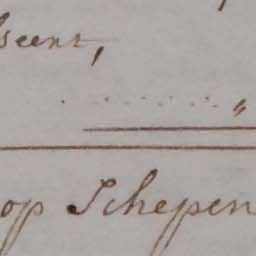 scent,
. . . . . . . . "
op Schepen